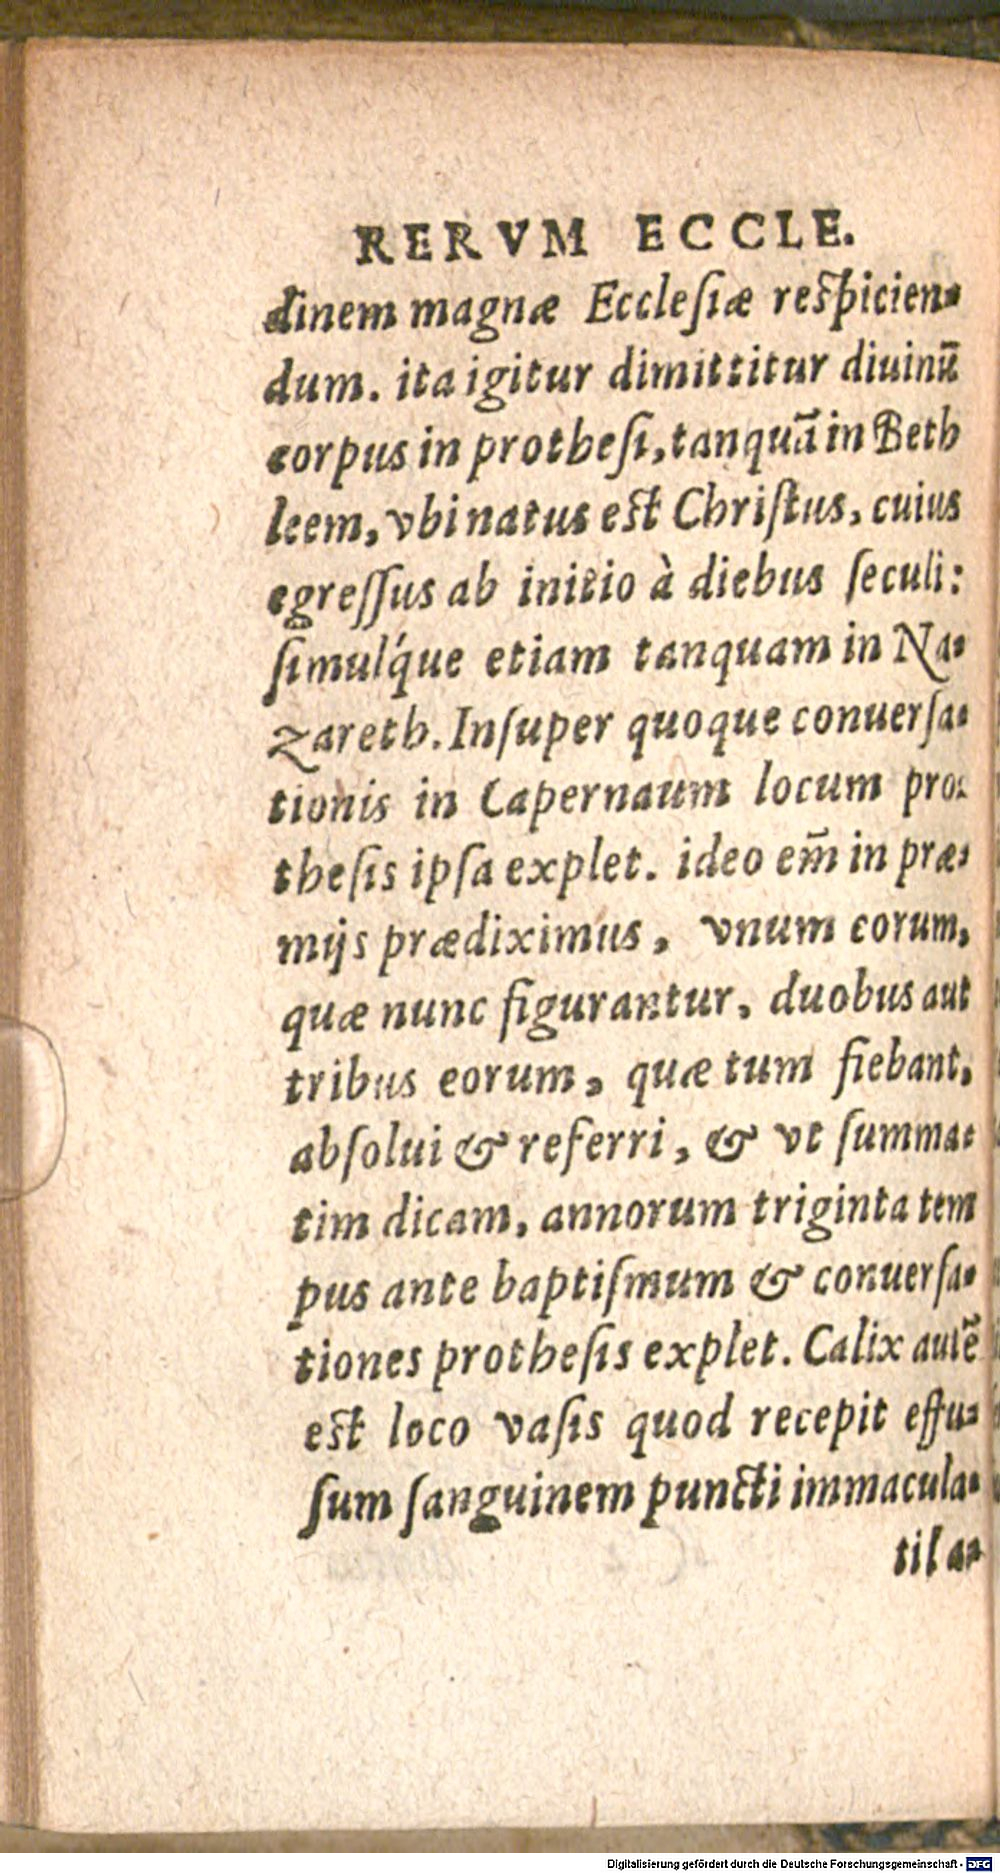 RERVM ECCLE.
dinem magnæ Eccleſiæ reſpicien-
dum. ita igitur dimittitur diuinū
corpus in protheſi, tanquā in Beth
leem, vbi natus eſt Chriſtus, cuius
egreſſus ab initio à diebus ſeculi:
ſimulq́ue etiam tanquam in Na-
zareth. Inſuper quoque conuerſa-
tionis in Capernaum locum pro-
theſis ipſa explet. ideo em̄ in præ-
mijs prædiximus, vnum eorum,
quæ nunc figurantur, duobus aut
tribus eorum, quæ tum fiebant,
abſolui & referri, & vt ſumma-
tim dicam, annorum triginta tem
pus ante baptiſmum & conuerſa-
tiones protheſis explet. Calix autē
eſt loco vaſis quod recepit effu-
ſum ſanguinem puncti immacula-
ti la-
Digitalisierung gefördert durch die Deutsche Forschungsgemeinschaft - DFG